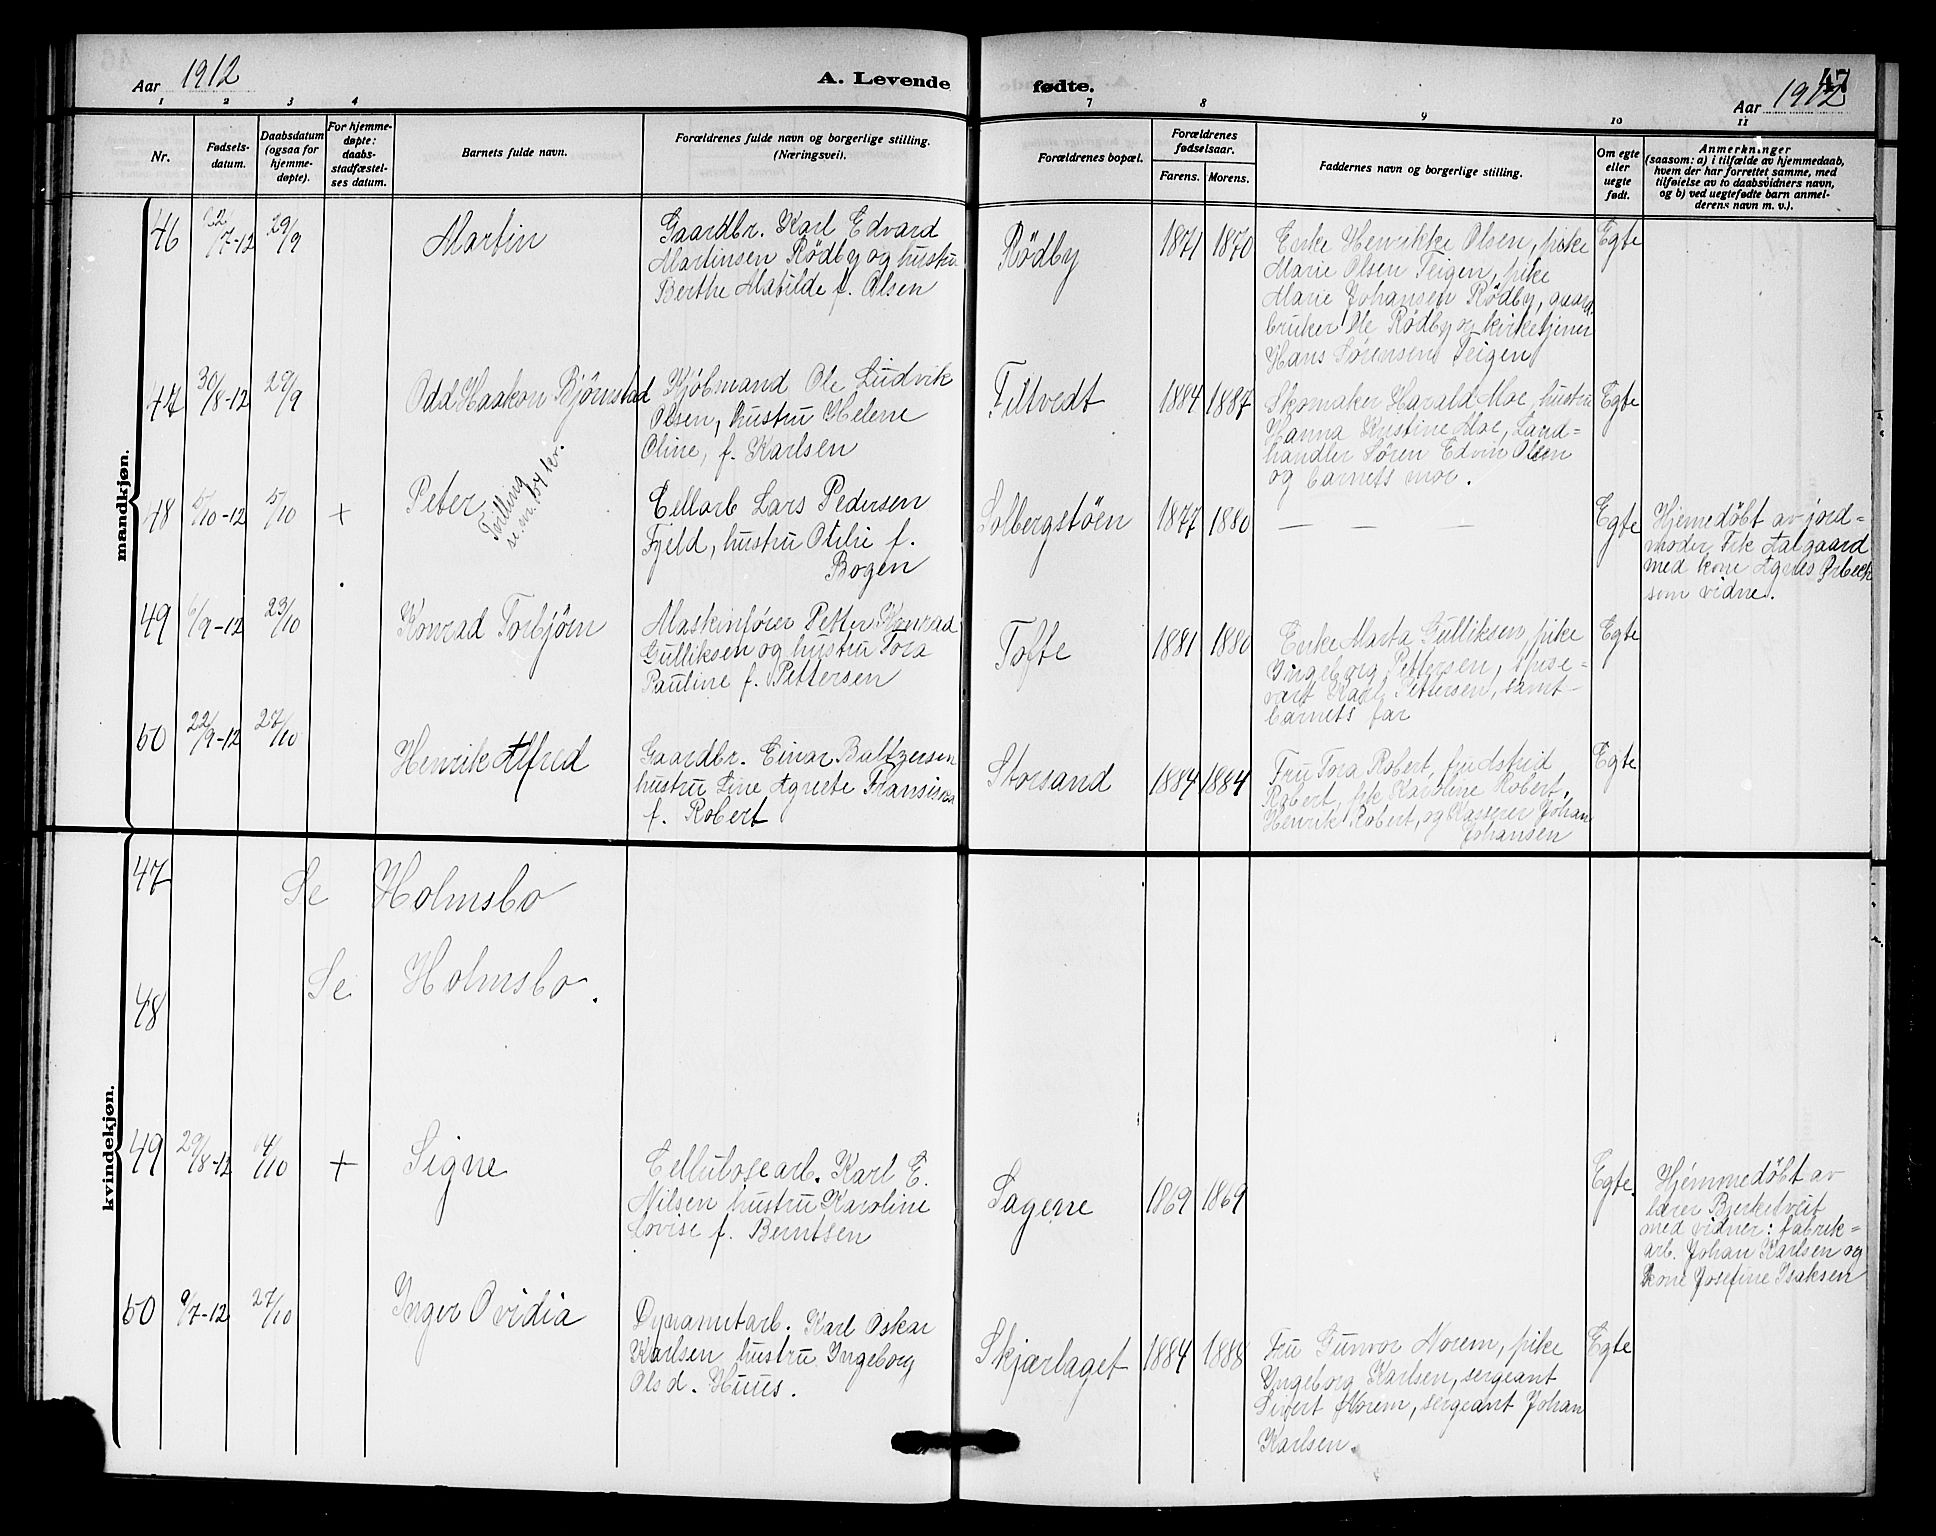 Aar 1912
A. Levende
fødte.
47
Aar 1912
1 2 3 4
7 8 9 10 11
Nr.
Fødsels-
datum.
Daabsdatum
(ogsaa for
hjemme-
døpte).
For hjemme-
døpte:
daabs-
stadfæstel-
ses datum.
Barnets fulde navn.
Forældrenes fulde navn og borgerlige stilling.
(Næringsvei).
Forældrenes bopæl.
Forældrenes
fødselsaar.
Farens. Morens.
Faddernes navn og borgerlige stilling.
Om egte
eller
uegte
født.
Anmerkninger
(saasom: a) i tilfælde av hjemmedaab,
hvem der har forrettet samme, med
tilføielse av to daabsvidners navn,
og b) ved uegtefødte barn anmel-
derens navn m. v.).
mandkjøn.
46
/7-12
29/9
Martin
Gaardbr. Karl Edvard
Martinsen Rødby og hustru
Berthe Matilde f. Olsen
Rødby
1871
1870
Enke Henrikke Olsen, pike
Marie Olsen Teigen, pike
Marie Johansen Rødby, gaard
bruker Ole Rødby og kirketjener
Hans Sørensen Teigen
Egte
47
30/8-12
29/9
Odd Haakon Bjørnstad
Kjøbmand Ole Ludvik
Olsen, hustru Helene
Oline, f. Karlsen
Filtvedt
1884
1887
Skomaker Harald Moe, hustru
Hanna Kristine Moe, Land=
handler Søren Edvin Olsen
og barnets mor.
Egte
48
5/10-12
5/10
+
Peter
Tvilling
se. nr. 54 kv.
Cellarb Lars Pedersen
Fjeld, hustru Otilie f.
Bogen
Solbergstøen
1877
1880
— — —
Egte
Hjemedøbt av jord=
moder Frk Aalgaard
med kone Agnes
som vidne.
49
6/9-12
23/10
Konrad Torbjørn
Maskinfører Petter Konrad
Gulliksen og hustru Tora
Pauline f. Pettersen
Tofte
1881
1880
Enke Marta Gulliksen, pike
Ingeborg Pettersen, spise=
vært Karl Pettersen, samt
barnets far
Egte
50
22/9-12
27/10
Henrik Alfred
Gaardbr. Einar Baltzersen
hustru Line Agnete Fransisca
f. Robert
Storsand
1884
1884
Fru Tora Robert,
Robert, frk Karoline Robert,
Henrik Robert, og Kasserer Johan
Johansen
Egte
kvindekjøn.
47
Se Holmsbo
48
Se Holmsbo.
49
29/8-12
14/10
+
Signe
Cellulosearb. Karl E.
Nilsen hustru Karoline
Lovise f. Berntsen
Sagene
1869
1869
Egte.
Hjemmedøbt av
lærer Bjerketveit
med vidner: fabrik=
arb. Johan Karlsen og
kone Josefine Isaksen
50
9/7-12
27/10
Inger Ovidia
Dynamitarb. Karl Oskar
Karlsen hustru Ingeborg
Olsd. Huus.
Skjærlaget
1884
1888
Fru Gunvor Norem, pike
Ingeborg Karlsen, sergeant
Sivert Norem, sergeant Johan
Karlsen.
Egte